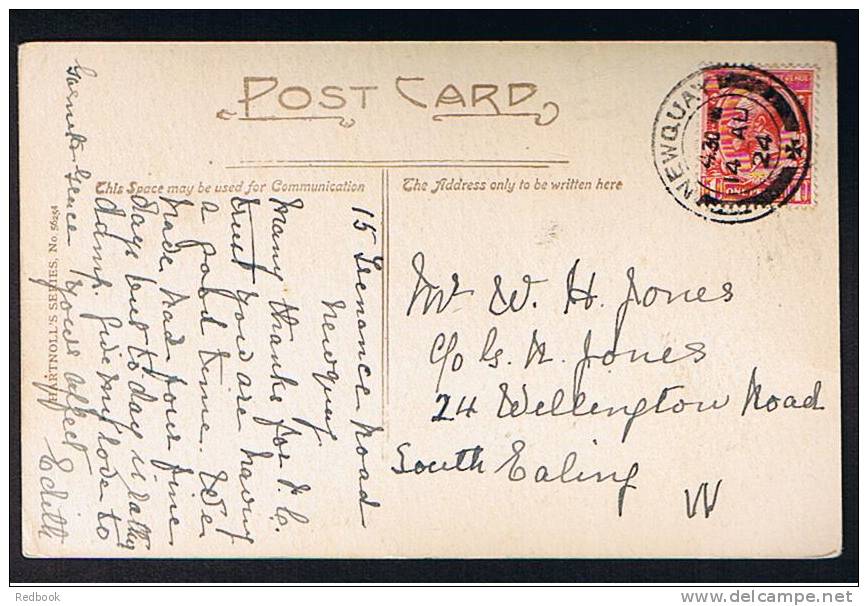 POST CARD
This Space may be used for Communication
The Address only to be written here
NEWQUAY
4.30
14 AU
24
15 Trenance Road
Newquay
Many thanks for P.C.
trust you are having
a good time. We
have had four fine
days but to day is rather
damp. Give my love to
Grace yours affect
Edith
Mr W. H. Jones
c/o G. A. Jones
24 Wellington Road
South Ealing
W
HARTNOLL'S SERIES, No.
Redbook
www.delcampe.net